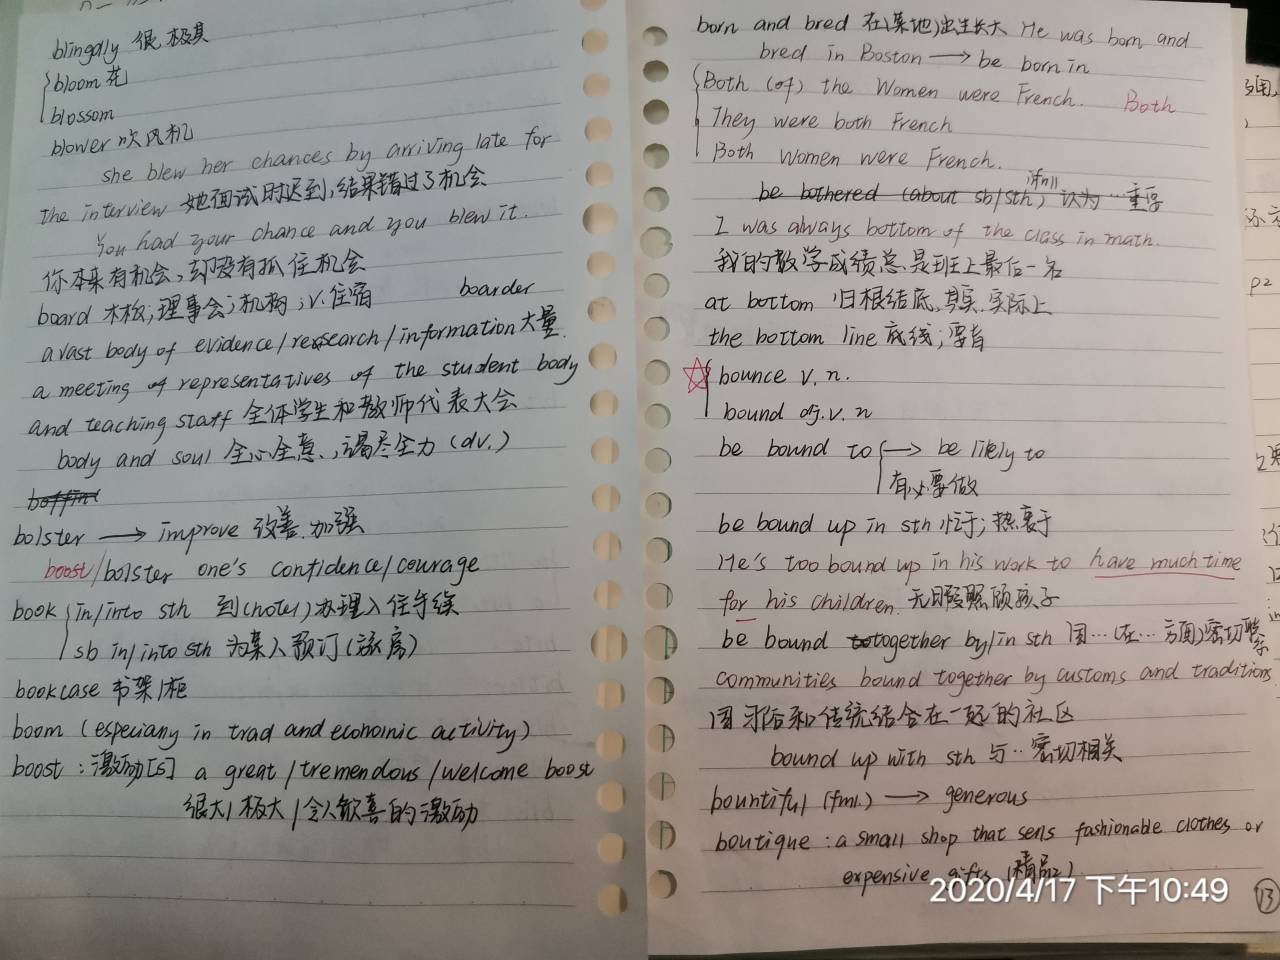 blingdly 很 极其
bloom 花
blossom
blower 吹风机
she blew her chances by arriving late for
the interview 她面试时迟到,结果错过了机会
You had your chance and you blew it.
你本来有机会,却没有抓住机会
board 木板;理事会;机构;v.住宿 boarder
a vast body of evidence/research/information 大量
a meeting of representatives of the student body
and teaching staff 全体学生和教师代表大会
body and soul 全心全意,竭尽全力(dv.)
boffin
bolster → improve 改善.加强
boost/bolster one's confidence/courage
book in/into sth 到(hotel)办理入住手续
sb in/into sth 为某人预订(旅店)
bookcase 书架/柜
boom (especiany in trad and economic activity)
boost:激励[s] a great/tremendous/welcome boost
很大/极大/令人欢喜的激励
born and bred 在(某地)出生长大 He was born and
bred in Boston → be born in
Both (of) the Women were French. Both
They were both French
Both Women were French.
be bothered (about sb/sth) 认为…重要
I was always bottom of the class in math.
我的数学成绩总是班上最后一名
at bottom 归根结底,其实.实际上
the bottom line 底线;要旨
bounce v.n.
bound adj.v.n
be bound to → be likely to
有必要做
be bound up in sth 忙于;热衷于
He's too bound up in his work to have much time
for his children. 无暇照顾孩子
be bound together by/in sth 因…(在…方面)密切联系
communities bound together by customs and traditions
因习俗和传统结合在一起的社区
bound up with sth 与…密切相关
bountiful (fml.) → generous
boutique:a small shop that sens fashionable clothes or
expensive gifts (精品店)
2020/4/17 下午10:49
13